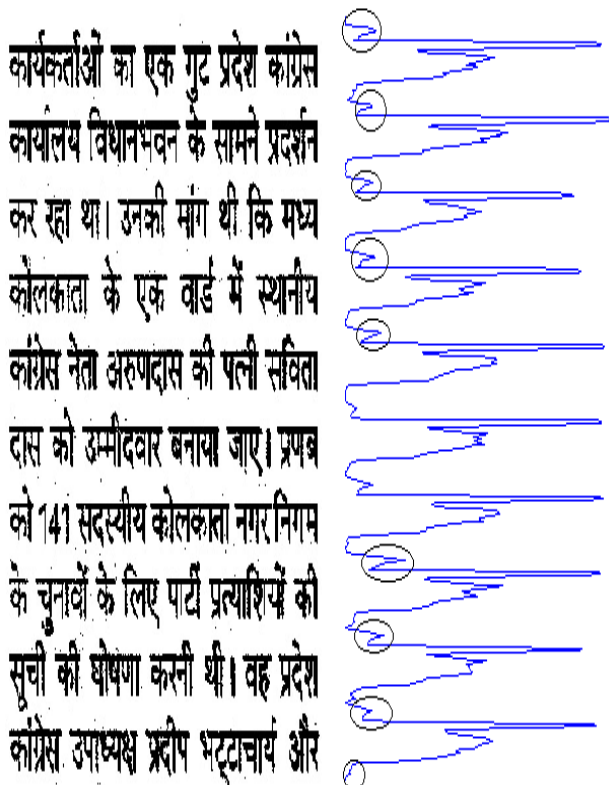 कार्यकर्ताओं का एक गुट प्रदेश कांग्रेस
कार्यालय विधानभवन के सामने प्रदर्शन
कर रहा था। उनकी मांग थी कि मध्य
कोलकाता के एक वार्ड में स्थानीय
कांग्रेस नेता अरुणदास की पत्नी सविता
दास को उम्मीदवार बनाया जाए। प्रणब
को 141 सदस्यीय कोलकाता नगर निगम
के चुनावों के लिए पार्टी प्रत्याशियों की
सूची की घोषणा करनी थी। वह प्रदेश
कांग्रेस उपाध्यक्ष प्रदीप भट्टाचार्य और